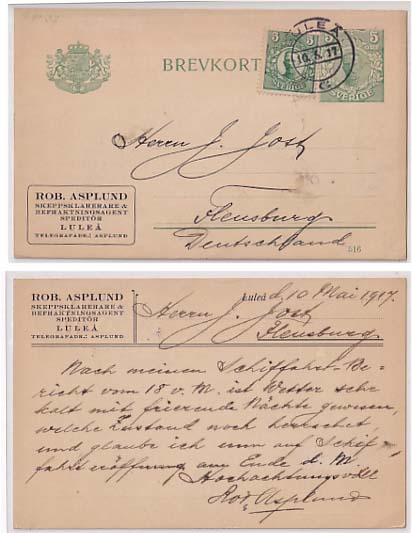 BREVKORT
5 5
SVERIGE
5
ÖRE
SVERIGE
LULEÅ
10.5.17
Herrn J. Jost
Flensburg
Deutschland
ROB. ASPLUND
SKEPPSKLARERARE &
BEFRAKTNINGSAGENT
SPEDITÖR
LULEÅ
TELEGRAFADR.: ASPLUND
516
ROB. ASPLUND
SKEPPSKLARERARE &
BEFRAKTNINGSAGENT
SPEDITÖR
LULEÅ
TELEGRAFADR.: ASPLUND
Luleå d. 10 Mai 1917.
Herrn J. Jost
Flensburg
Nach meinen Schiffahrt-Be=
richt vom 18 v. M. ist Wetter sehr
kalt mit frierende Nächte gewesen,
welche Zustand noch herrschet,
und glaube ich nun auf Schif=
fahrtseröffnung am Ende d. M.
Hochachtungsvoll
Rob. Asplund